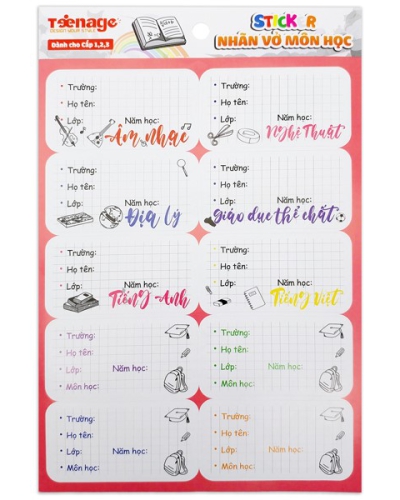 Teenage
Dành cho Cấp 1,2,3
STICKER
NHÃN VỞ MÔN HỌC
Trường:
Họ tên:
Lớp: Năm học:
Âm nhạc
Trường:
Họ tên:
Lớp: Năm học:
Nghệ Thuật
Trường:
Họ tên:
Lớp: Năm học:
Địa lý
Trường:
Họ tên:
Lớp: Năm học:
giáo dục thể chất
Trường:
Họ tên:
Lớp: Năm học:
Tiếng Anh
Trường:
Họ tên:
Lớp: Năm học:
Tiếng Việt
Trường:
Họ tên:
Lớp: Năm học:
Môn học:
Trường:
Họ tên:
Lớp: Năm học:
Môn học:
Trường:
Họ tên:
Lớp: Năm học:
Môn học:
Trường:
Họ tên:
Lớp: Năm học:
Môn học: